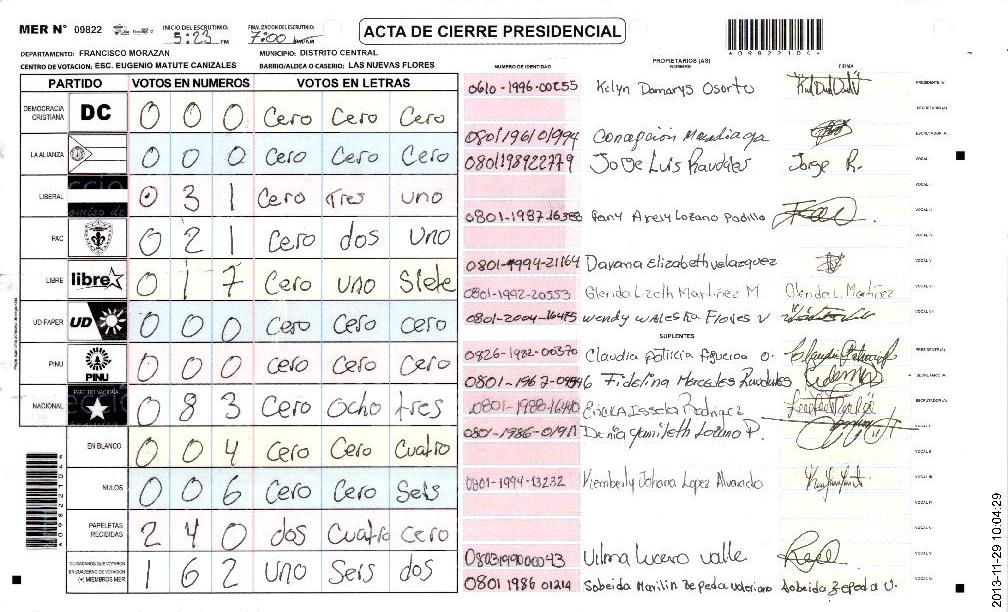 MER N° 09822
INICIO DEL ESCRUTINIO: 5:23 PM
FINALIZACION DEL ESCRUTINIO: 7:00 PM/AM
ACTA DE CIERRE PRESIDENCIAL
DEPARTAMENTO: FRANCISCO MORAZAN
MUNICIPIO: DISTRITO CENTRAL
CENTRO DE VOTACION: ESC. EUGENIO MATUTE CANIZALES
BARRIO/ALDEA O CASERIO: LAS NUEVAS FLORES
PARTIDO VOTOS EN NUMEROS VOTOS EN LETRAS
DEMOCRACIA CRISTIANA DC 0 0 0 Cero Cero Cero
LA ALIANZA 0 0 0 Cero Cero Cero
LIBERAL 0 3 1 Cero Tres uno
PAC 0 2 1 Cero dos uno
LIBRE libre 0 1 7 Cero uno Siete
UD-FAPER UD 0 0 0 Cero Cero Cero
PINU PINU 0 0 0 Cero Cero Cero
NACIONAL 0 8 3 Cero Ocho tres
EN BLANCO 0 0 4 Cero Cero Cuatro
NULOS 0 0 6 Cero Cero Seis
PAPELETAS RECIBIDAS 2 4 0 dos Cuatro cero
CIUDADANOS QUE VOTARON EN CUADERNO DE VOTACION (+) MIEMBROS MER 1 6 2 uno Seis dos
NUMERO DE IDENTIDAD
PROPIETARIOS (AS)
NOMBRE
FIRMA
0610-1996-00255 Kelyn Damarys Osorto PRESIDENTE (A)
SECRETARIO (A)
0801196101994 Concepción Mendiaga ESCRUTADOR (A)
0801198922779 Jorge Luis Raudales Jorge R. VOCAL I
VOCAL II
0801-1987-16388 Fany Arely Lozano Padilla VOCAL III
VOCAL IV
0801-1994-21164 Dayana Elizabeth Velazquez VOCAL V
0801-1992-20553 Glenda Lizeth Martinez M. Glenda L. Martinez VOCAL VI
0801-2004-16475 Wendy Waleska Flores V VOCAL VII
SUPLENTES
0826-1982-00370 Claudia Patricia Figueroa O. PRESIDENTE (A)
Fidelina Mercedes Raudales SECRETARIO (A)
Ericka Issela Rodriguez ESCRUTADOR (A)
Denia Yamileth Lozano P. VOCAL I
VOCAL II
0801-1994-13232 Kemberly Johana Lopez Alvarado VOCAL III
VOCAL IV
Vilma Lucero Valle VOCAL V
0801 1986 01214 Sobeida Marilin Zepeda Valeriano Sobeida Zepeda V. VOCAL VI
0982210 4
2013-11-29 10:04:29